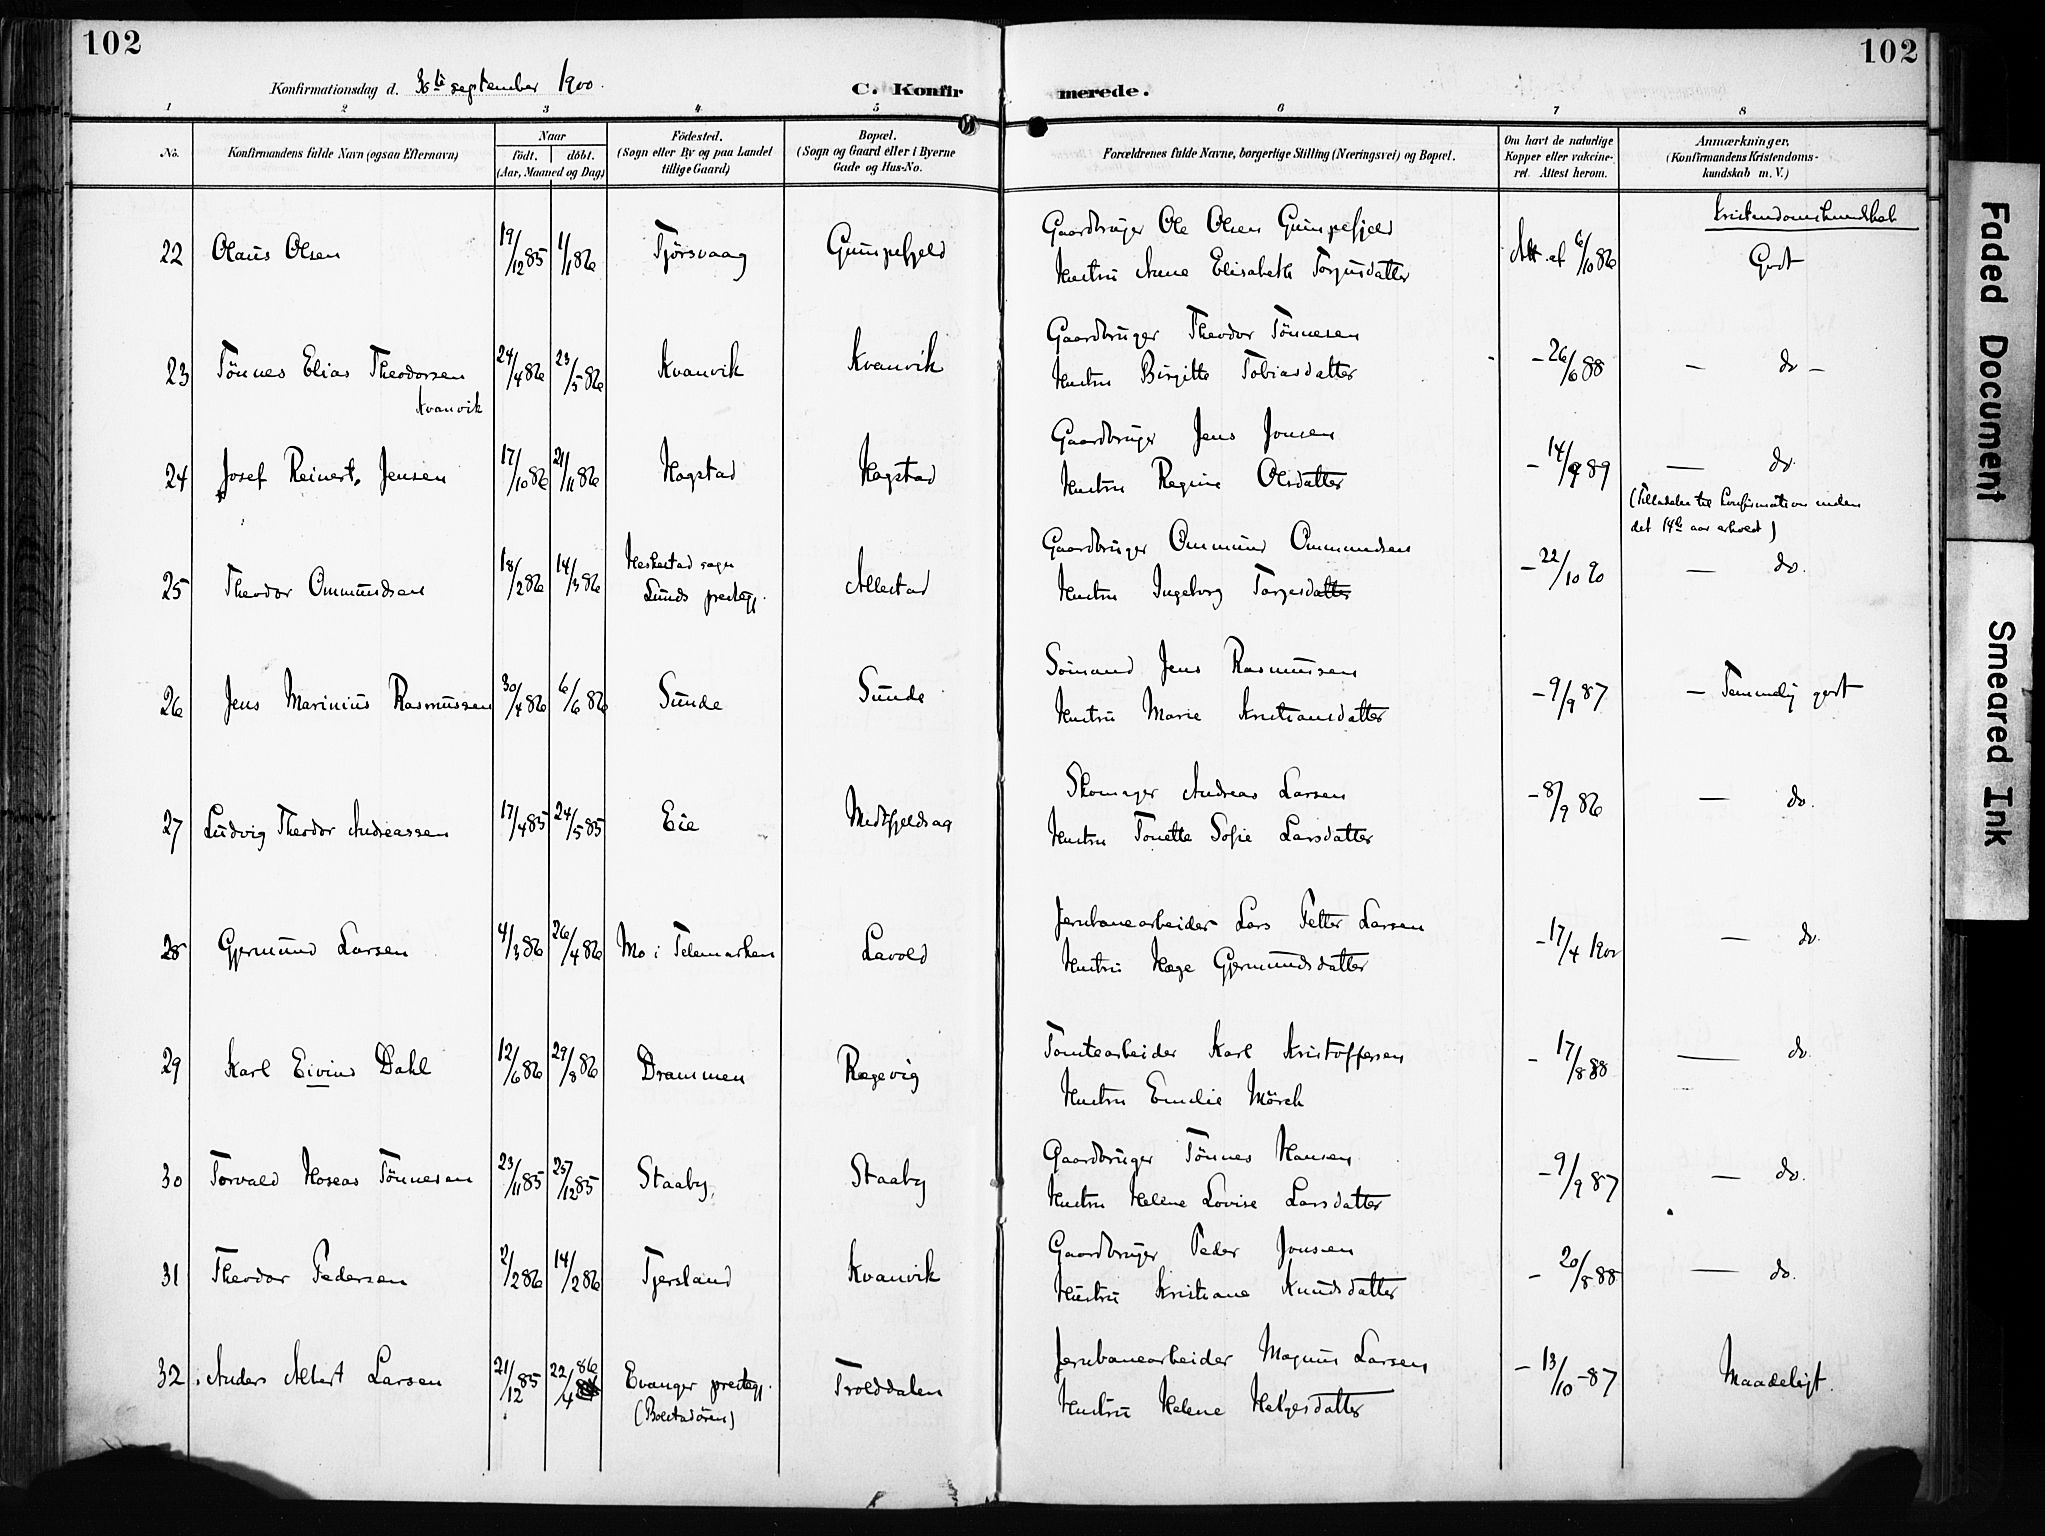 102
102
Konfirmationsdag d. 30te september 1900.
C. Konfirmerede.
1 2 3 4 5 6 7 8
No.
Konfirmandens fulde Navn (ogsaa Efternavn)
Naar
födt. döbt.
(Aar, Maaned og Dag)
Födested.
(Sogn eller By og paa Landet
tillige Gaard)
Bopæl.
(Sogn og Gaard eller i Byerne
Gade og Hus-No.
Forældrenes fulde Navne, borgerlige Stilling (Næringsvei) og Bopæl.
Om havt de naturlige
Kopper eller vakcine-
ret. Attest herom.
Anmærkninger.
(Konfirmandens Kristendoms-
kundskab m. V.)
Kristendomskundskab
Gaardbruger Ole Olsen Gumpefjeld
22 Olaus Olsen 19/12 85 1/1 86 Tjørsvaag Gumpefjeld Hustru Anne Elisabeth Torjusdatter Att. af 6/10 86 Godt
Gaardbruger Theodor Tönnesen
23 Tönnes Elias Theodorsen 24/4 86 23/5 86 Kvanvik Kvanvik Hustru Birgitte Tobiasdatter - 26/6 88 — do —
Kvanvik
Gaardbruger Jens Jonsen
24 Josef Reinert Jensen 17/10 86 21/11 86 Hogstad Hogstad Hustru Regine Olsdatter - 14/9 89 — do.
(Tilladelse til Confirmation inden
det 14de aar erholdt)
Gaardbruger Ommund Ommundsen
25 Theodor Ommundsen 18/2 86 14/3 86 Heskestad sogn Allestad Hustru Ingeborg Torgersdatter - 22/10 90 — do.
Lunds prestegj.
Sömand Jens Rasmussen
26 Jens Marinius Rasmussen 30/4 86 6/6 86 Sunde Sunde Hustru Marie Kristiansdatter - 9/9 87 — Temmelig godt
Skomager Andreas Larsen
27 Ludvig Theodor Andreassen 17/4 85 24/5 85 Eie Midtfjeldsaa Hustru Tonette Sofie Larsdatter - 8/9 86 — do.
Jernbanearbeider Lars Petter Larsen
28 Gjermund Larsen 4/3 86 26/4 86 Mo i Telemarken Lavold Hustru Hæge Gjermundsdatter - 17/4 1900 — do.
Tomtearbeider Karl Kristoffersen
29 Karl Eivind Dahl 12/6 86 29/8 86 Drammen Rægevig Hustru Emilie Mörch - 17/8 88 — do
Gaardbruger Tönnes Hansen
30 Torvald Hoseas Tönnesen 23/11 85 25/12 85 Staaby Staaby Hustru Helene Lovise Larsdatter - 9/9 87 — do.
Gaardbruger Peder Jonsen
31 Theodor Pedersen 2/2 86 14/2 86 Tjersland Kvanvik Hustru Kristiane Knudsdatter - 20/8 88 — do.
Jernbanearbeider Magnus Larsen
32 Anders Albert Larsen 21/12 85 22/4 86 Evanger prestegj. Trolddalen Hustru Helene Helgesdatter - 13/10 - 87 Maadeligt.
(Bolstadören)
Faded Document
Smeared Ink